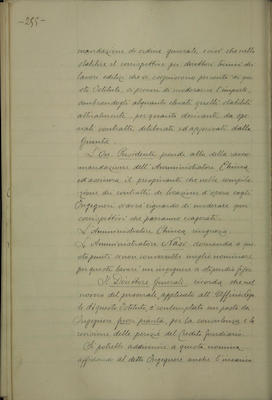 - 255 -
mandazione di ordine generale, e cioè che nello
stabilire il corrispettivo pei direttori tecnici dei
lavori edilizi che si eseguiscono per conto di que
sto Istituto, si procuri di moderarne l'importo,
sembrandogli alquanto elevati quelli stabiliti
attualmente, per quanto derivanti da spe
ciali contratti deliberati ed approvati dalla
Giunta.
L'On. Presidente prende atto della racco
mandazione dell'Amministratore Chimea
ed assicura il proponente che nella compila
zione dei contratti di locazione d'opera cogli
Ingegneri si avrà riguardo di moderare quei
corrispettivi che paressero esagerati.
L'Amministratore Chimea ringrazia.
L'Amministratore Nasi domanda a que
sto punto se non converrebbe meglio nominare
per questi lavori un ingegnere a stipendio fisso.
Il Direttore Generale ricorda che nel
nuovo del personale applicato all'
di questo Istituto è contemplato un posto di
Ingegnere per la consulenza e la
revisione delle perizie del Credito fondiario.
Si potrebbe addivenire a questa nomina
affidando al detto Ingegnere anche l'incarico